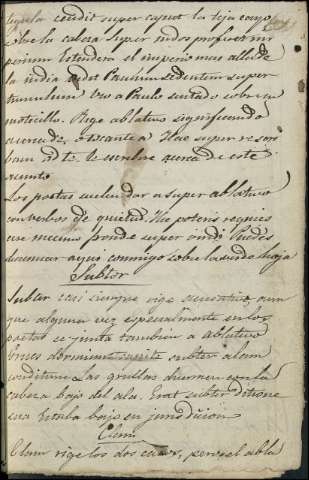 tegula cecidit super caput la teja cayo
sobre la cabeza Super indos proferet im
perium Estendera el imperio mas alla de
la india Paulum sedentem super
tumulum Veo a Paulo sentado sobre un
montecillo. Rige ablativo significando
acerca de, o tocante a Hac super re scri
bam ad te. Te escribire acerca de este
asunto
Los poetas suelen dar a super ablativo
con verbos de quietud. Hic poteris requies
cere mecum fronde super viridi Puedes
descansar aqui conmigo sobre la verde hoja
Subter
Subter casi siempre rige acusativo, aun
que alguna vez especialmente en los
poetas se junta tambien a ablativo
Grues dormiunt capite subter alam
condito Las grullas duermen con la
cabeza bajo del ala. Erat subter ditione
sua Estaba bajo su jurisdiccion
Clam
Clam rige los dos casos, pero el abla